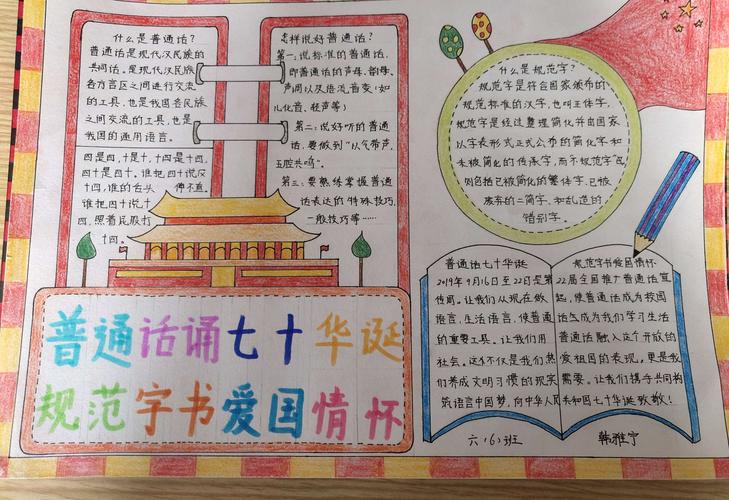 什么是普通话?
普通话是现代汉民族的
共同话。是现代汉民族
各方言区之间进行交流
的工具,也是国各民族
之间交流的工具,也是
我国的通用语言。
四是四,十是十,十四是十四,
四十是四十。谁把四十说反
十四,谁的舌头 伸不直。
谁把四十说十
四,照着屁股打
十四。
怎样说好普通话?
第一:说标准的普通话,
即普通话的声母、韵母、
声调以及语流,音变(如
儿化音、轻声等)
第二:说好听的普通
话,要做到“以气带声,
五腔共鸣”。
第三:要熟练掌握普通
话表达的特殊技巧,
一般技巧等……
什么是规范字?
规范字是符合国家颁布的
规范标准的汉字,也叫正体字。
规范字是经过整理简化并由国家
以字表形式正式公布的简化字和
未被简化的传承字,而不规范字
则包括已被简化的繁体字,已被
废弃的二简字,和乱造的
错别字。
普通话七十华诞
2019年9月16日至22日是第
传周。让我们从现在做
语言,生活语言,使普通
的重要工具。让我们用
社会。这不仅是我们热
们养成文明习惯的现实
筑语言中国梦,向中华人民
规范字书爱国情怀
22届全国推广普通话宣
起,使普通话成为校园
话生成为我们学习生活
普通话融入这个开放的
爱祖国的表现,更是我
需要。让我们携手共同构
共和国七十华诞致敬!
普通话诵七十华诞
规范字书爱国情怀
六(6)班
韩雅宁